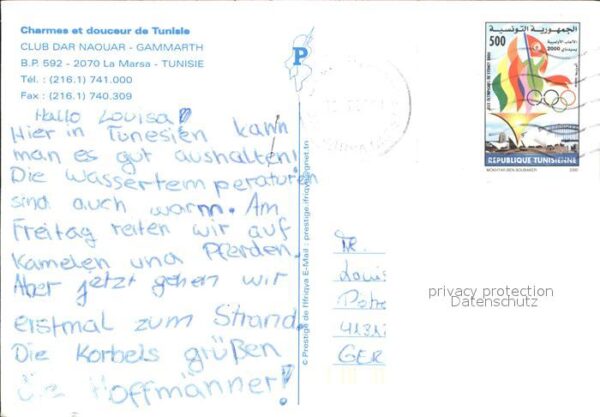 Charmes et douceur de Tunisie
CLUB DAR NAOUAR - GAMMARTH
B.P. 592 - 2070 La Marsa - TUNISIE
Tél. : (216.1) 741.000
Fax : (216.1) 740.309
Hallo Louisa!
Hier in Tunesien kann
man es gut aushalten!
Die Wassertemperaturen
sind auch warm. Am
Freitag reiten wir auf
Kamelen und Pferden.
Aber jetzt gehen wir
erstmal zum Strand.
Die Korbels grüßen
die Hoffmänner!
P
© Prestige de l'Ifriqya E-Mail : prestige.ifriqya@gnet.tn
الجمهورية التونسية
500
الألعاب الأولمبية
2000
REPUBLIQUE TUNISIENNE
MOKHTAR BEN BOUBAKER
2000
Fr.
Louis
Petre
GER
privacy protection
Datenschutz